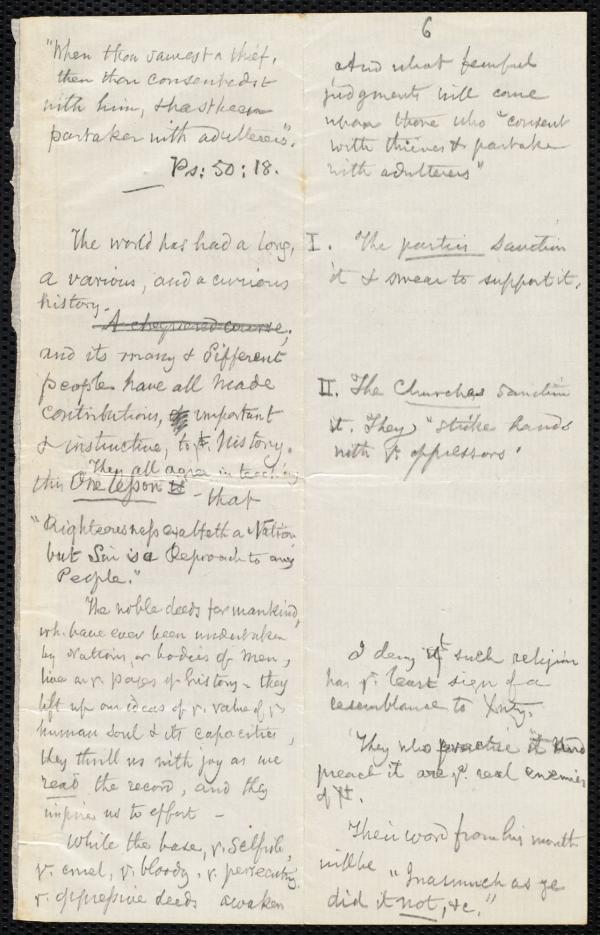 "When thou sawest a thief,
then thou consentedst
with him, & hast been
partaker with adulterers".
Ps: 50: 18.
The world has had a long,
a various, and a curious
history.
A chequered course,
and its many & different
people have all made
contributions, important
& instructive, to yr. history.
They all agree in teaching
this One lesson - that
"Righteousness exalteth a Nation
but Sin is a Reproach to any
People."
The noble deeds for mankind,
wh. have ever been undertaken
by Nations, or bodies of men,
live on yr. pages of history - they
lift up our ideas of yr. value of yr.
human soul & its capacities,
they thrill us with joy as we
read the record, and they
inspire us to effort -
While the base, yr. selfish,
yr. cruel, yr. bloody, yr. persecuting,
yr. oppressive deeds awaken
6
And what fearful
judgments will come
upon those who "consent
with thieves & partake
with adulterers"
I. The parties sanction
it & swear to support it.
II. The Churches sanction
it. They "strike hands
with yr. oppressors.
I deny yt such religion
has yr. least sign of a
resemblance to Xnty.
They who practise it and
preach it are yr. real enemies
of Xt.
Their word from his mouth
will be "Inasmuch as ye
did it not, &c."